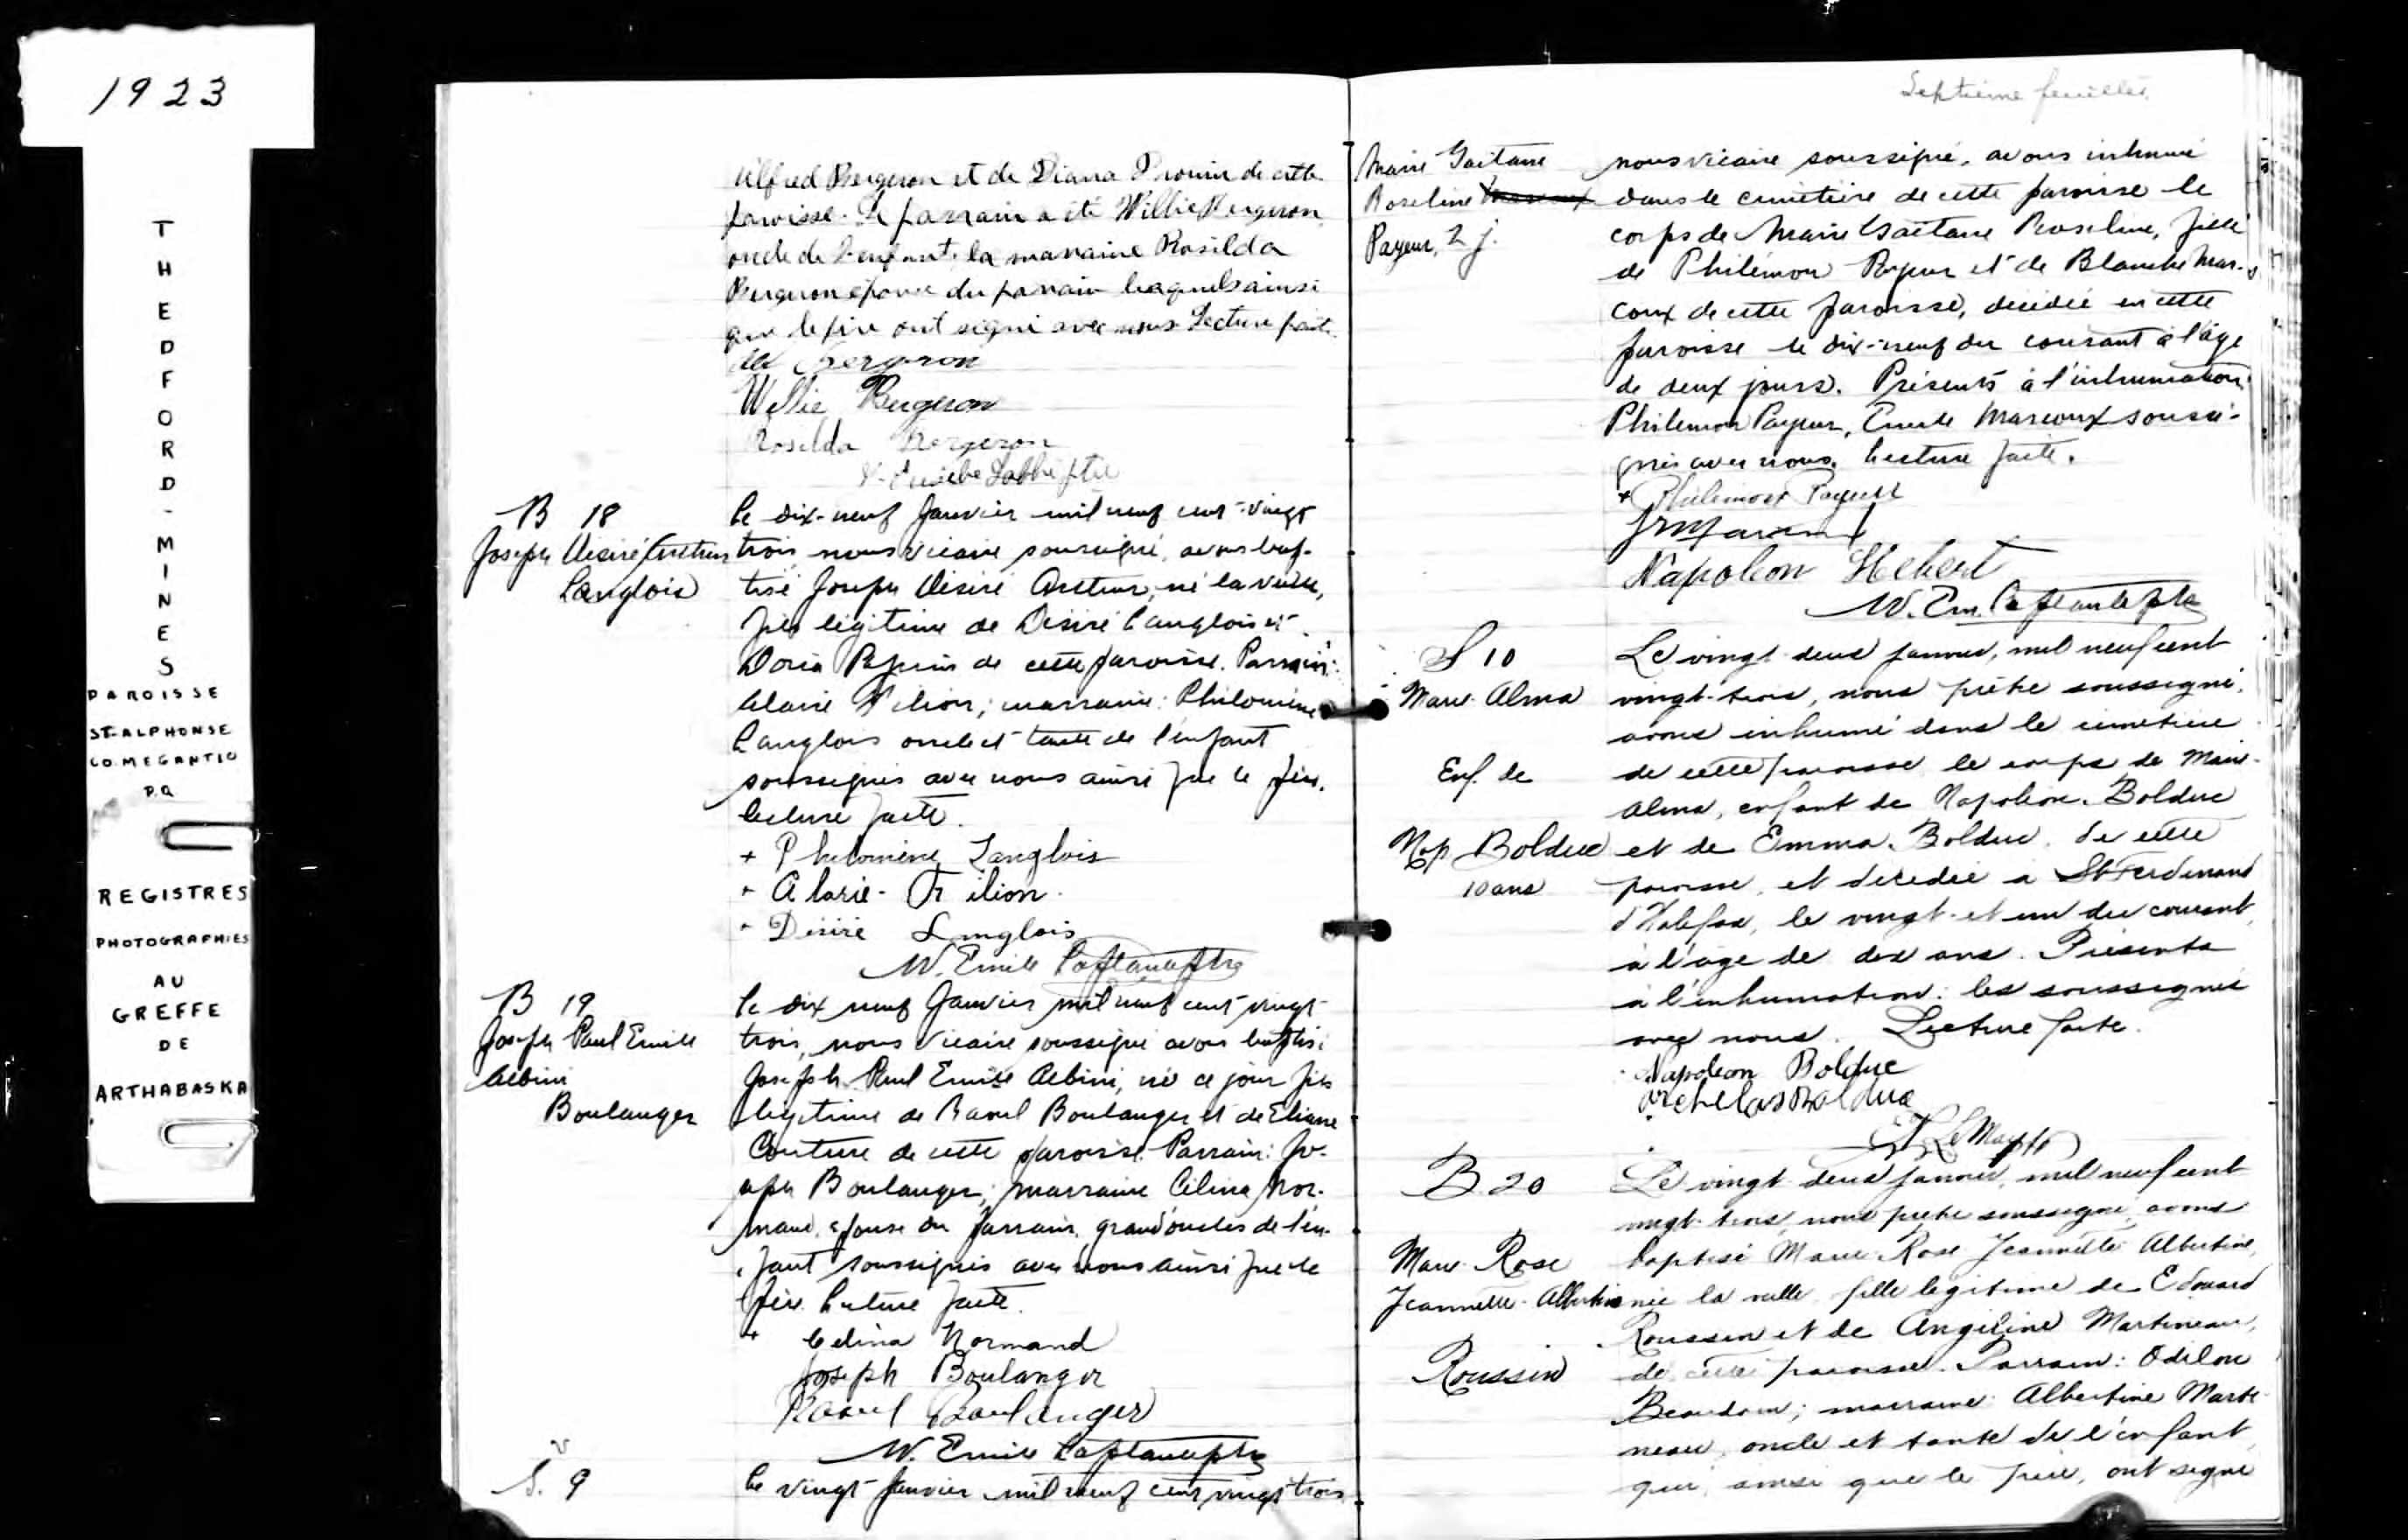 1923
THEDFORD-MINES
PAROISSE
ST-ALPHONSE
CO. MEGANTIC
P.Q
REGISTRES
PHOTOGRAPHIES
AU
GREFFE
DE
ARTHABASKA
Alfred Bergeron et de Diana Drouin de cette
paroisse. Le parrain a été Willie Bergeron
oncle de l'enfant, la marraine Rosilda
Bergeron épouse du parrain lesquels ainsi
que le père ont signé avec nous Lecture faite.
Bergeron
Willie Bergeron
Rosilda Bergeron
Labbé ptre
B 18
Joseph Désiré
Langlois
Le dix-neuf Janvier mil neuf cent-vingt
trois nous vicaire soussigné, avons bap-
tisé Joseph Désiré né la veille,
fils légitime de Désiré Langlois et
Doria Pépin de cette paroisse. Parrain:
Alarie Filion; marraine: Philomène
Langlois oncle et tante de l'enfant
soussignés avec nous ainsi que le père.
Lecture faite.
+ Philomène Langlois
+ Alarie Filion.
Désiré Langlois
W. Emile Laplante ptre
B 19
Joseph Paul Emile
Albini
Boulanger
Le dix neuf Janvier mil neuf cent vingt
trois, nous vicaire soussigné avons baptisé
Joseph Paul Emile Albini, né ce jour fils
légitime de Raoul Boulanger et de Eliane
Couture de cette paroisse. Parrain: Jo-
seph Boulanger; marraine Célina Nor-
mand, épouse du parrain, grand'oncles de l'en-
fant soussignés avec nous ainsi que le
père. Lecture faite.
+ Celina Normand
Joseph Boulanger
Raoul Boulanger
W. Emile Laplante ptre
S. 9
Le vingt Janvier mil neuf cent vingt trois
Septième feuillet.
Marie Gaétane
Roseline Marcoux
Payeur, 2 j.
nous vicaire soussigné, avons inhumé
dans le cimetière de cette paroisse le
corps de Marie Gaétane Roseline, fille
de Philémon Payeur et de Blanche Mar-
coux de cette paroisse, décédée en cette
paroisse le dix-neuf du courant à l'âge
de deux jours. Présents à l'inhumation
Philemon Payeur, Marcoux soussi-
gnés avec nous. Lecture faite.
+ Philemon Payeur
Napoleon Hebert
W. Em. Laplante ptre
S 10
Marie-Alma
Enf. de
Nap Bolduc
10 ans
Le vingt-deux janvier, mil neuf cent
vingt-trois, nous prêtre soussigné,
avons inhumé dans le cimetière
de cette paroisse le corps de Marie-
Alma, enfant de Napoléon Bolduc
et de Emma Bolduc, de cette
paroisse, et décédée à St-Ferdinand
d'Halifax, le vingt-et-un du courant,
à l'âge de dix ans. Présents
à l'inhumation: les soussignés
avec nous. Lecture faite.
Napoleon Bolduc
Archelas Bolduc
LeMay ptr
B 20
Marie-Rose
Jeannette-Albertine
Roussin
Le vingt-deux janvier, mil neuf cent
vingt-trois, nous prêtre soussigné, avons
baptisé Marie-Rose-Jeannette Albertine,
née la veille, fille légitime de Edouard
Roussin et de Angéline Martineau,
de cette paroisse. Parrain: Odilon
Beaudoin; marraine: Albertine Marti-
neau, oncle et tante de l'enfant,
qui, ainsi que le père, ont signé